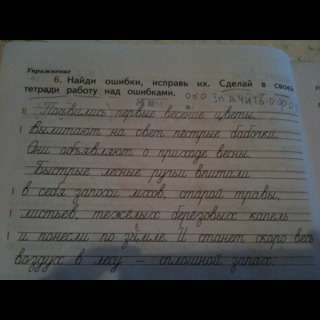 Упражнение
6. Найди ошибки, исправь их. Сделай в своей
тетради работу над ошибками.
Поевились первые весение цветы.
Вылитают на свет пёстрые бабочки.
Они объевляют о приходе весны.
Быстрые лесные ручьи впитали
в себя запохи мхов, старой травы,
листьев, тежёлых берёзовых капель
и понесли по зимле. И станет скоро весь
воздух в лесу – сплошной запах.